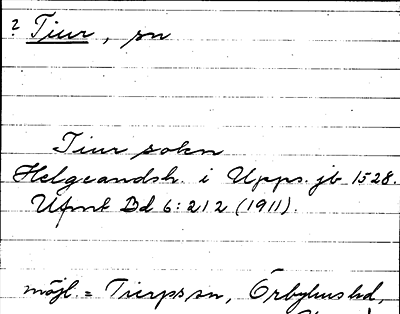 ? Tiur, sn
Tiur sokn
Helgeandsh. i Upps. jb 1528.
Ufmt Bd 6: 212 (1911).
möjl. = Tierps sn, Örbyhus hd,